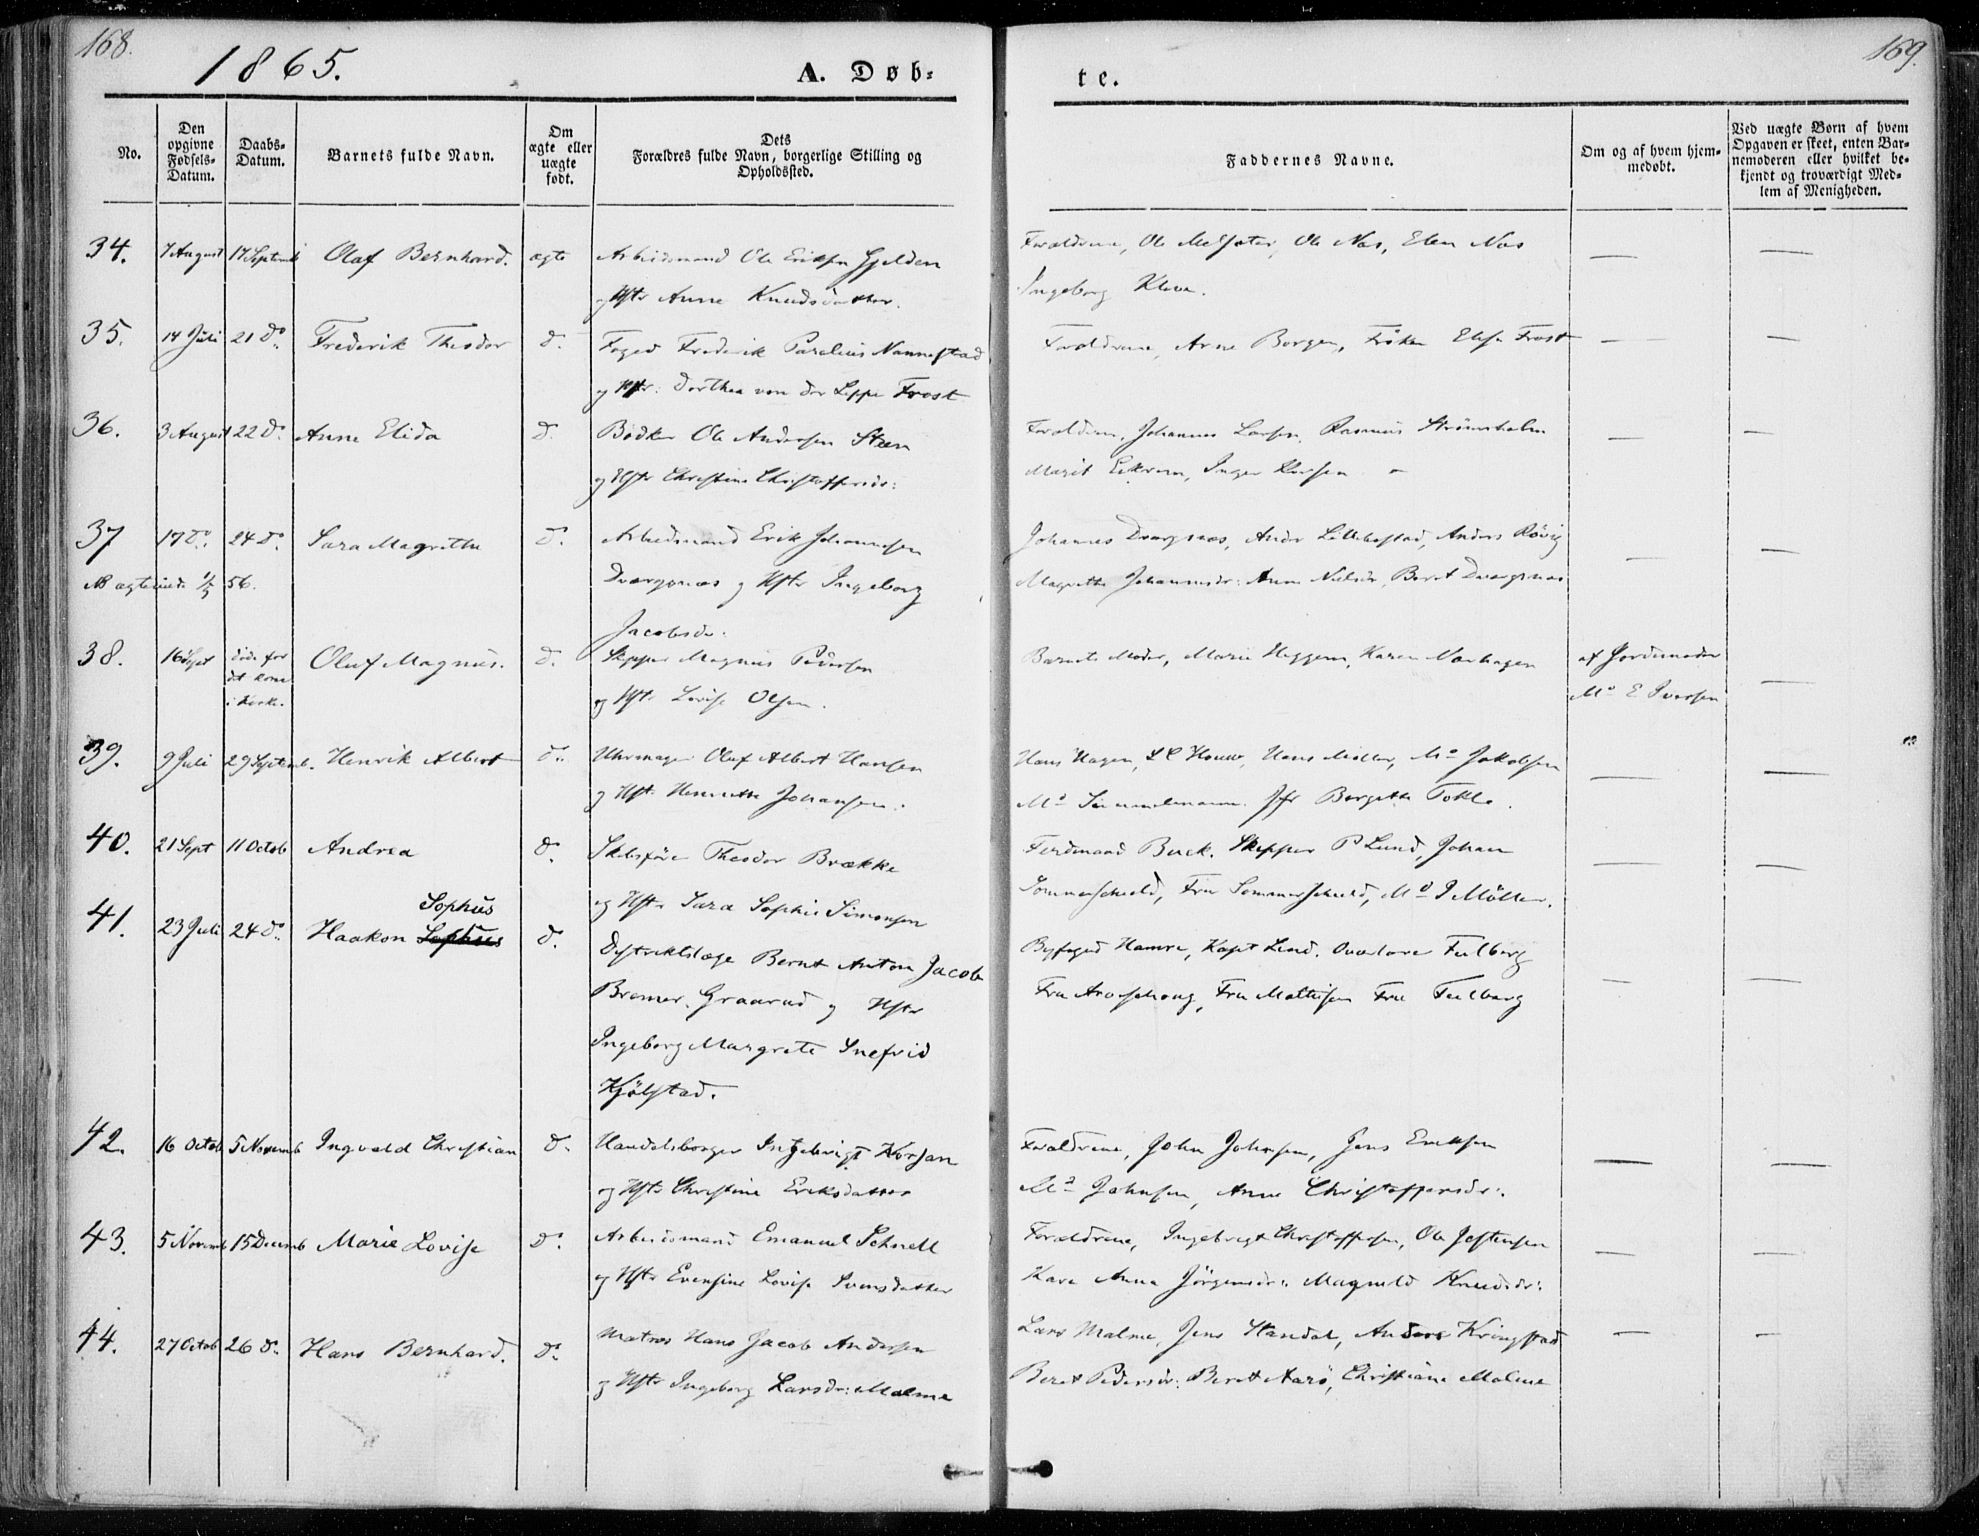 168.
1865.
A. Døb-
te.
169.
No.
Den opgivne Fødsels-Datum.
Daabs-Datum.
Barnets fulde Navn.
Om ægte eller uægte født.
Dets
Forældres fulde Navn, borgerlige Stilling og
Opholdssted.
Faddernes Navne.
Om og af hvem hjem-
medøbt.
Ved uægte Børn af hvem
Opgaven er skeet, enten Bar-
nemoderen eller hvilket be-
kjendt og troværdigt Med-
lem af Menigheden.
34. 7 August 17 Septemb Olaf Bernhard. ægte Arbeidsmand Ole Eriksen Gjelden
og Hstr Anne Knudsdatter.
Forældrene, Ole Melsæter, Ole Næs, Elen Næs
Ingeborg Kleve.
35. 14 Juli 21 do. Frederik Theodor do. Foged Frederik Parelius Nannestad
og Hstr: Dorthea von der Lippe Frost
Forældrene, Arne Borgen, Frøken Elise Frost
36. 3 August 22 do. Anne Elida do. Bødker Ole Andersen Steen
og Hstr Christine Christoffersdr:
Forældrene, Johannes Larsen, Rasmus Strømsholm
Marit Eikrem, Inger Larsen
37 17 do. 24 do. Sara Magrethe do. Arbeidsmand Erik Johannesen
Dværgsnæs og Hstr Ingeborg
Jacobsdr.
NB ægteviede 56.
Johannes Dværgsnæs, Andr Lillebostad, Anders Røvig
Magrethe Johannesdr: Anne Nielsdr, Beret Dværgsnæs
38. 16 Sept døde før
det kom
i Kirke.
Oluf Magnus. do. Skipper Magnus Pedersen
og Hstr Lovise Olsen.
Barnets Moder, Marie Heggem, Karen Norhagen
af Jordemoder
Md E Iversen
39. 9 Juli 29 Septemb. Henrik Albert do. Uhrmager Oluf Albert Hansen
og Hst. Henriette Johansen.
Hans Hagen, Hans Møller, Md Jakobsen
Md Jfr Bergette Tokle.
40. 21 Sept 11 Octob Andrea do. Skibsfører Theodor Brække
og Hstr Sara Sophie Simonsen
Ferdinand Buck. Skipper P Lund, Johan
Sommerschield, Fru Sommerschield, Md P Møller.
41. 23 Juli 24 do. Haakon Sophus do. Distriktslæge Bernt Anton Jacob
Bremer Graarud og Hstr
Ingeborg Margrete Snefrid
Kjølstad.
Byfoged Hamre, Kapt Lund. Overlærer Feilberg
Fru Aroeschoug, Fru Mathisen Fru Feilberg
42. 16 Octob 5 Novemb Ingvald Christian do. Handelsborger Ingebrigt Korsan
og Hstr Christine Eriksdatter
Forældrene, John Johnsen, Jens Eriksen
Md Johnsen, Anne Christoffersdr:
43. 5 Novemb 15 Decemb Marie Lovise do. Arbeidsmand Emanuel Schnell
og Hstr Evensine Lovise Svensdatter
Forældrene, Ingebrigt Christoffersen, Ole Jostensen
Kare Anna Jørgensdr: Magnild Knudsdr:
44. 27 Octob 26 do. Hans Bernhard. do. Matros Hans Jacob Andersen
og Hstr Ingeborg Larsdr: Malme
Lars Malme, Jens Standal, Anders Kringstad
Beret Pedersdr: Berett Aarø, Christiane Malme